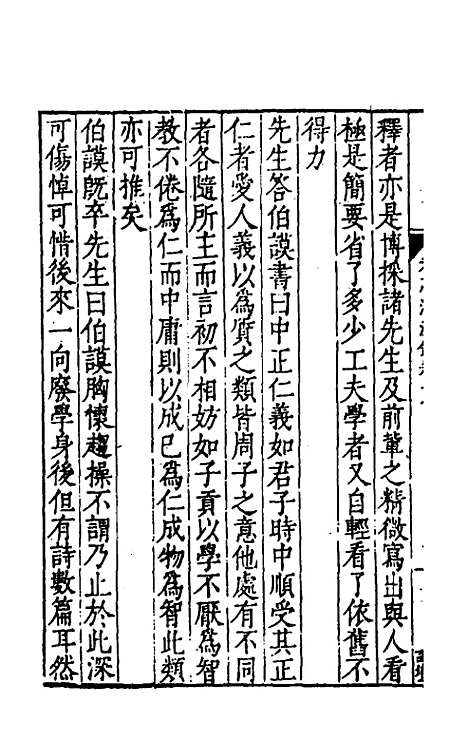 釋者亦是博採諸先生及前軰之精微寫出與人看
極是簡要省了多少工夫學者又自輕看了依舊不
得力
先生答伯謨書曰中正仁義如君子時中順受其正
仁者愛人義以爲質之類皆周子之意他處有不同
者各隨所主而言初不相妨如子貢以學不厭爲智
教不倦爲仁而中庸則以成已爲仁成物爲智此類
亦可推矣
伯謨旣卒先生曰伯謨胸懷趨操不謂乃止於此深
可傷悼可惜後來一向廢學身後但有詩數篇耳然